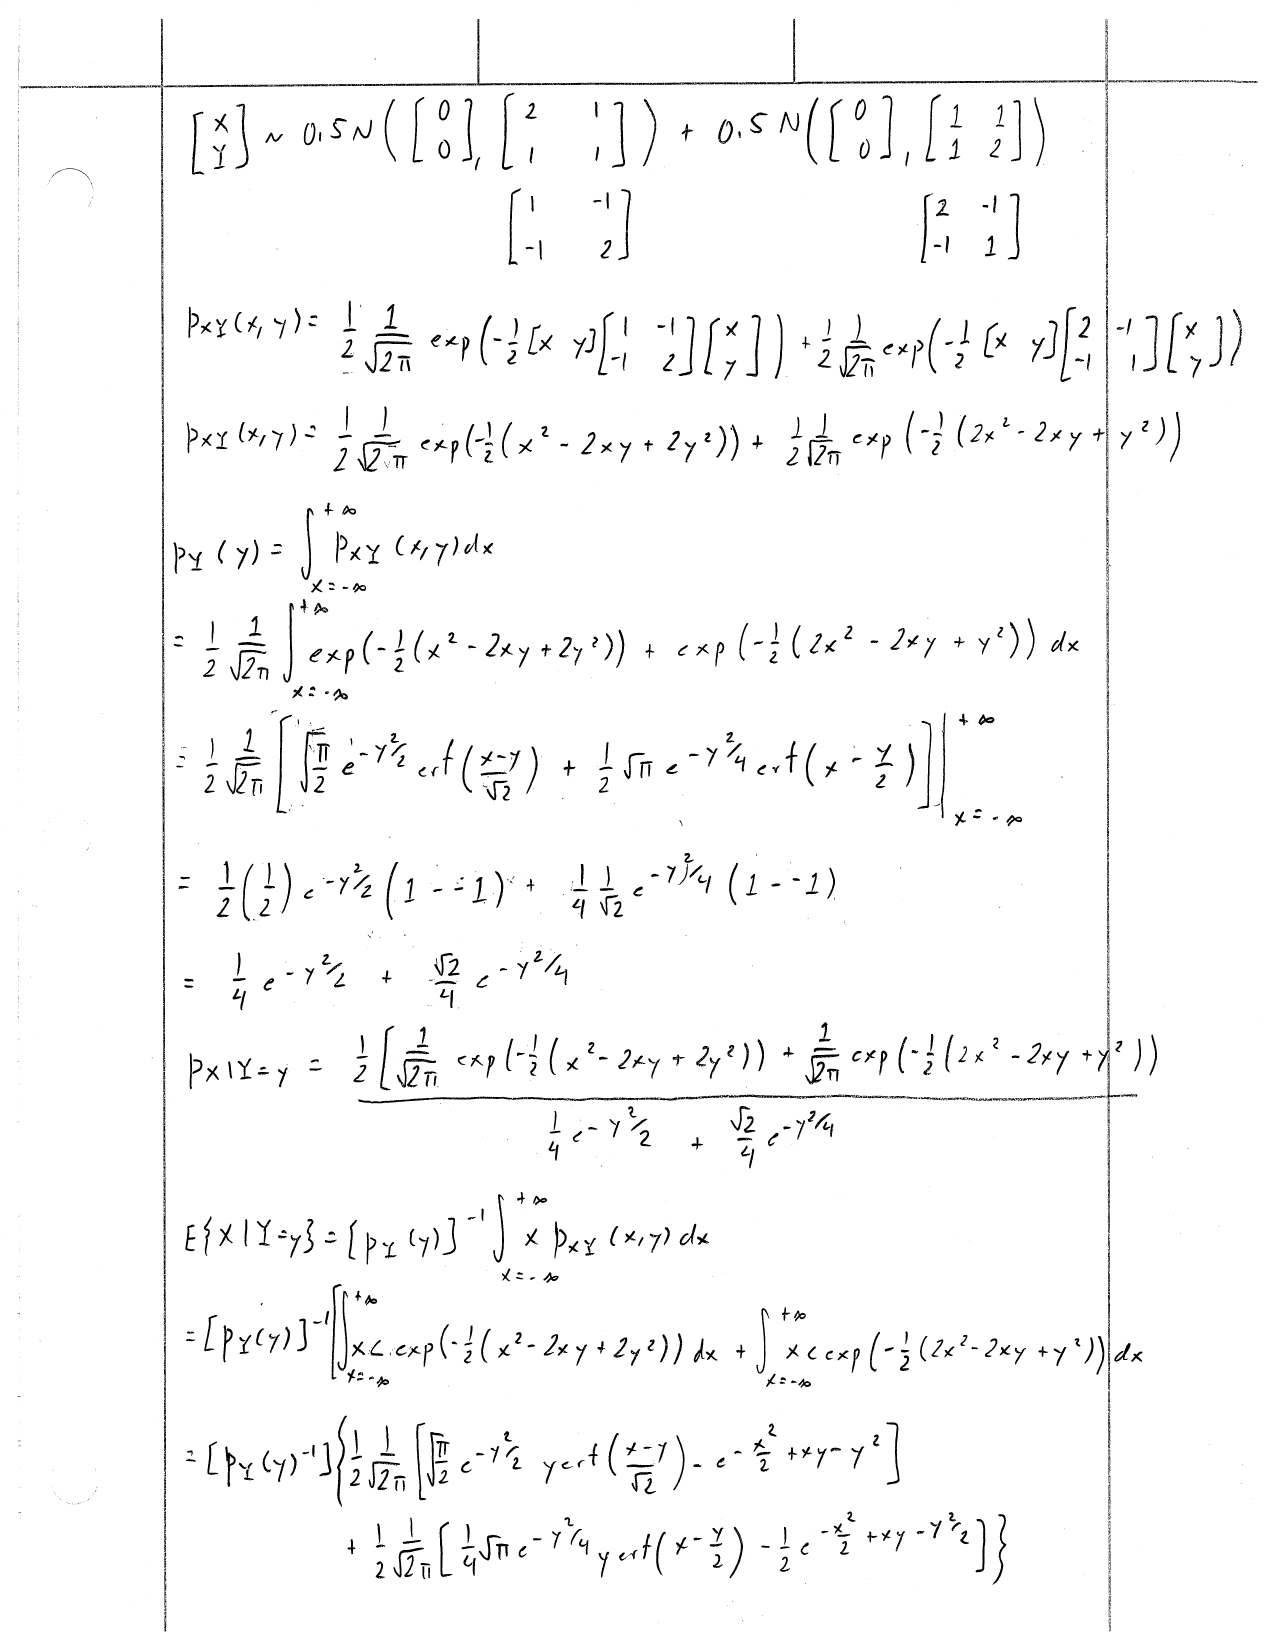 [X Y] ~ 0.5 N([0 0], [2 1 1 1]) + 0.5 N([0 0], [1 1 1 2])
[1 -1 -1 2] [2 -1 -1 1]
p_XY(x, y) = 1/2 1/√2π exp(-1/2 [x y][1 -1 -1 2][x y]) + 1/2 1/√2π exp(-1/2 [x y][2 -1 -1 1][x y])
p_XY(x, y) = 1/2 1/√2π exp(-1/2 (x² - 2xy + 2y²)) + 1/2 1/√2π exp(-1/2 (2x² - 2xy + y²))
p_Y(y) = ∫_{x=-∞}^{+∞} p_XY(x, y) dx
= 1/2 1/√2π ∫_{x=-∞}^{+∞} exp(-1/2 (x² - 2xy + 2y²)) + exp(-1/2 (2x² - 2xy + y²)) dx
= 1/2 1/√2π [√(π/2) e^{-y²/2} erf((x-y)/√2) + 1/2 √π e^{-y²/4} erf(x - y/2)] |_{x=-∞}^{+∞}
= 1/2 (1/2) e^{-y²/2} (1 - -1) + 1/4 1/√2 e^{-y²/4} (1 - -1)
= 1/4 e^{-y²/2} + √2/4 e^{-y²/4}
p_X|Y=y = 1/2 [1/√2π exp(-1/2 (x² - 2xy + 2y²)) + 1/√2π exp(-1/2 (2x² - 2xy + y²))
1/4 e^{-y²/2} + √2/4 e^{-y²/4}
E{X|Y=y} = [p_Y(y)]^{-1} ∫_{x=-∞}^{+∞} x p_XY(x, y) dx
= [p_Y(y)]^{-1} [∫_{x=-∞}^{+∞} x c exp(-1/2 (x² - 2xy + 2y²)) dx + ∫_{x=-∞}^{+∞} x c exp(-1/2 (2x² - 2xy + y²)) dx
= [p_Y(y)^{-1}] {1/2 1/√2π [√(π/2) e^{-y²/2} y erf((x-y)/√2) - e^{-x²/2 + xy - y²}]
+ 1/2 1/√2π [1/4 √π e^{-y²/4} y erf(x - y/2) - 1/2 e^{-x²/2 + xy - y²/2}]}